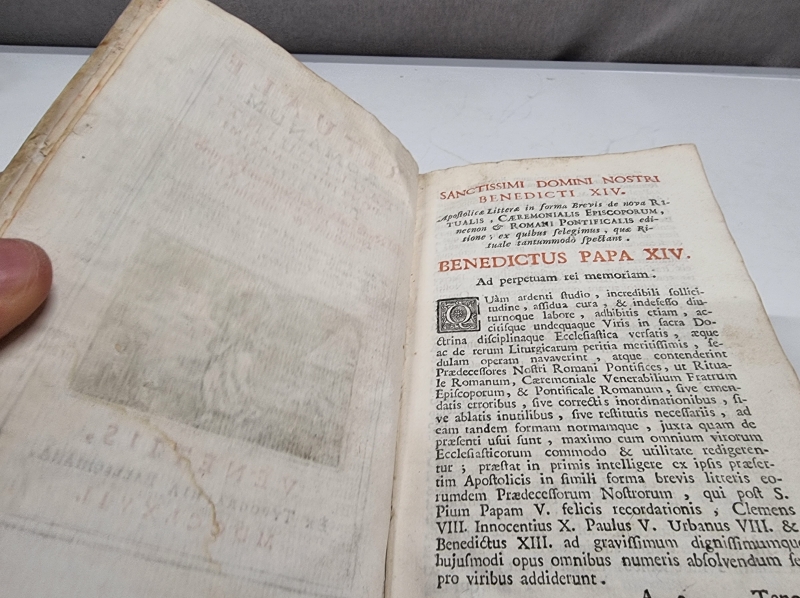 SANCTISSIMI DOMINI NOSTRI
BENEDICTI XIV.
Apostolicæ Litteræ in forma Brevis de nova RI-
TUALIS, CÆREMONIALIS EPISCOPORUM,
necnon & ROMANI PONTIFICALIS edi-
tione; ex quibus selegimus, quæ Ri-
tuale tantummodò spectant.
BENEDICTUS PAPA XIV.
Ad perpetuam rei memoriam.
QUàm ardenti studio, incredibili sollici-
tudine, assidua cura, & indefesso diu-
turnoque labore, adhibitis etiam, ac-
citisque undequaque Viris in sacra Do-
ctrina disciplinaque Ecclesiastica versatis, æque
ac de rerum Liturgicarum peritia meritissimis, se-
dulam operam navaverint, atque contenderint
Prædecessores Nostri Romani Pontifices, ut Ritua-
le Romanum, Cæremoniale Venerabilium Fratrum
Episcoporum, & Pontificale Romanum, sive emen-
datis erroribus, sive correctis inordinationibus, si-
ve ablatis inutilibus, sive restitutis necessariis, ad
eam tandem formam normamque, juxta quam de
præsenti usui sunt, maximo cum omnium virorum
Ecclesiasticorum commodo & utilitate redigeren-
tur; præstat in primis intelligere ex ipsis præser-
tim Apostolicis in simili forma brevis litteris eo-
rumdem Prædecessorum Nostrorum, qui post S.
Pium Papam V. felicis recordationis, Clemens
VIII. Innocentius X. Paulus V. Urbanus VIII. &
Benedictus XIII. ad gravissimum dignissimumque
hujusmodi opus omnibus numeris absolvendum se
pro viribus addiderunt.
VENETIIS,
EX TYPOGRAPHIA BALLEONIANA.